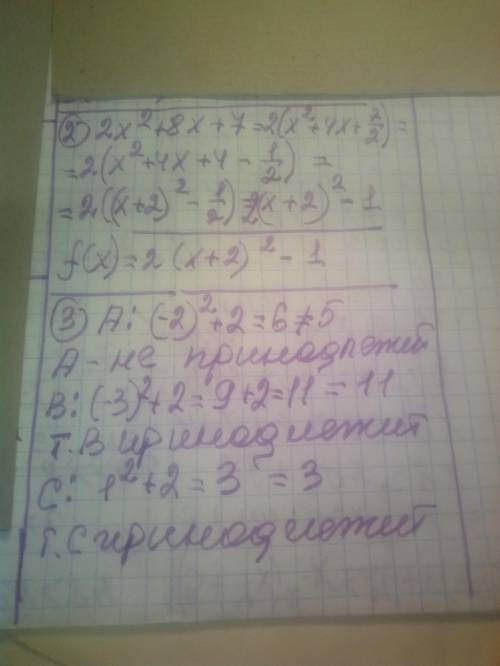 ② 2x²+8x+7=2(x²+4x+7/2)=
=2(x²+4x+4-1/2) =
=2((x+2)²-1/2)=2(x+2)²-1
f(x)=2(x+2)²-1
③ А: (-2)²+2=6≠5
А-не принадлежит
В: (-3)²+2=9+2=11=11
Т.В принадлежит
С: 1²+2=3 =3
Т.С принадлежит